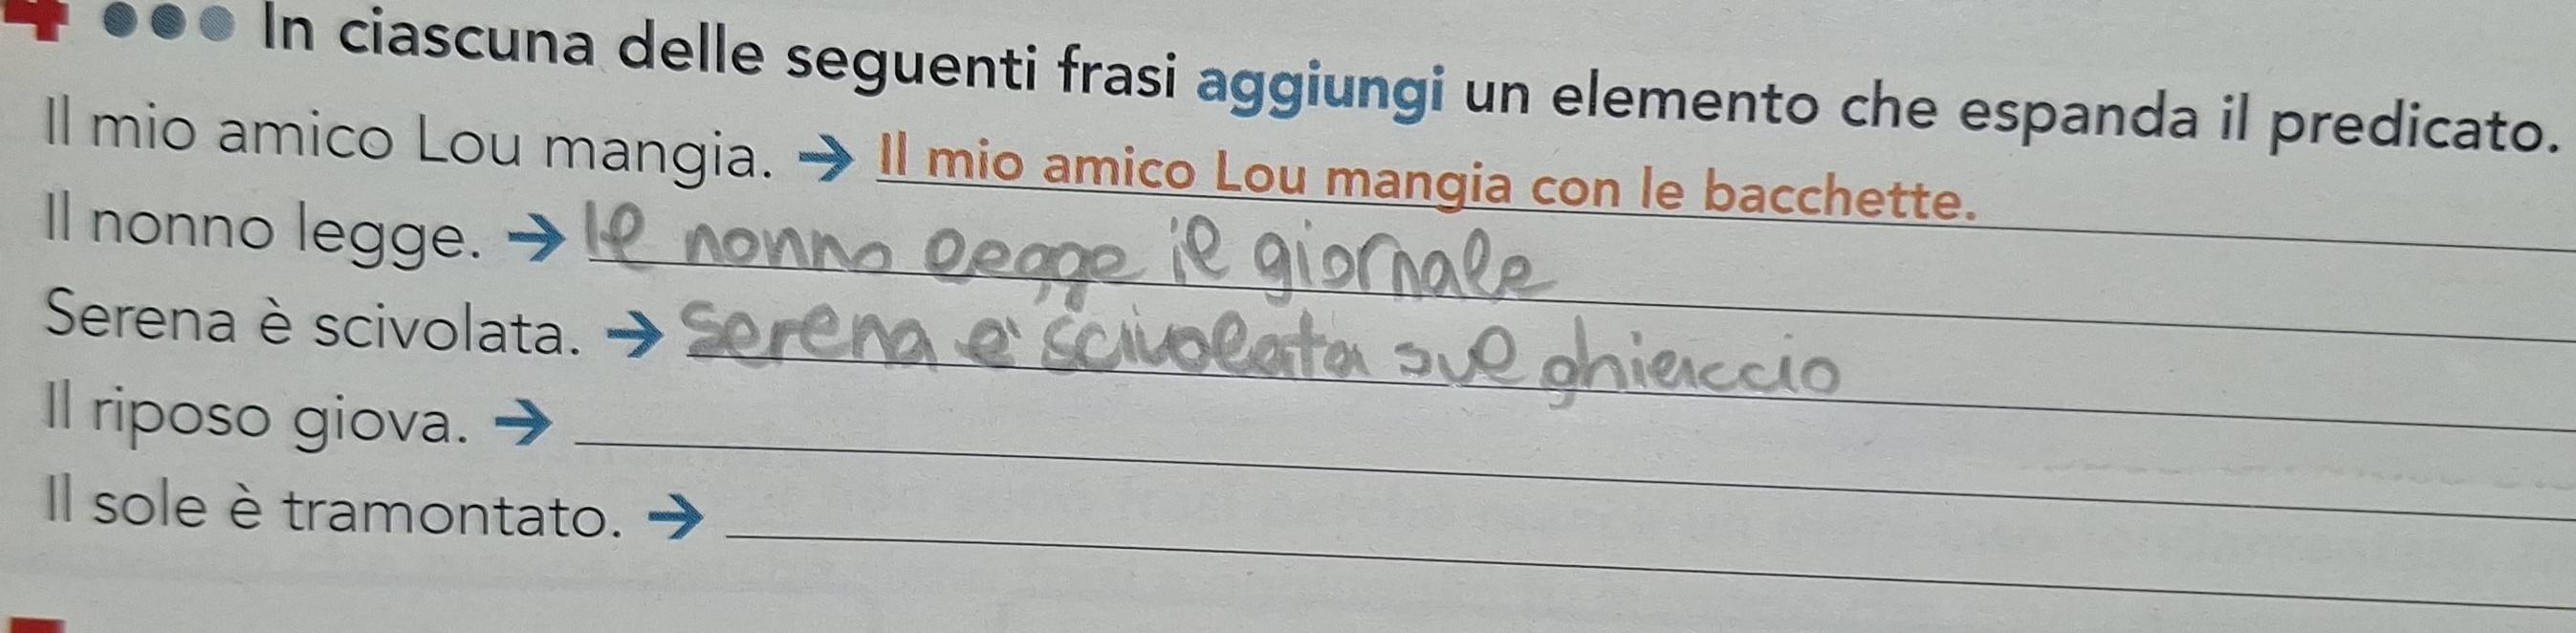 In ciascuna delle seguenti frasi aggiungi un elemento che espanda il predicato.
Il mio amico Lou mangia. → Il mio amico Lou mangia con le bacchette.
Il nonno legge. → Il nonno legge il giornale
Serena è scivolata. → Serena è scivolata sul ghiaccio
Il riposo giova. →
Il sole è tramontato. →